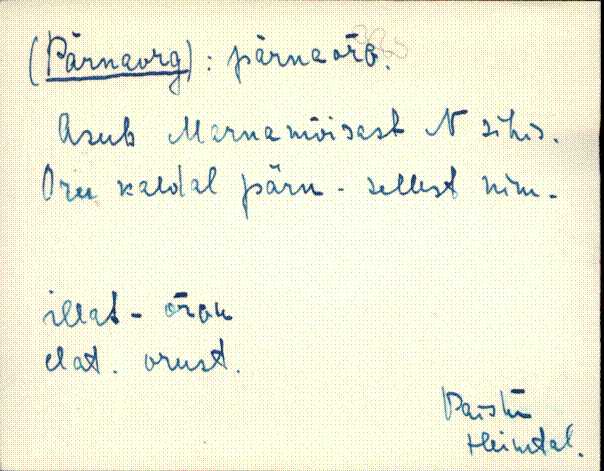 (Pärnaorg) : pärnaōrG.
Asub Marnamõisast N sihis.
Oru kaldal pärn - sellest nim.
illat - ōrGu
elat. orust.
Paistu
Heimtal.